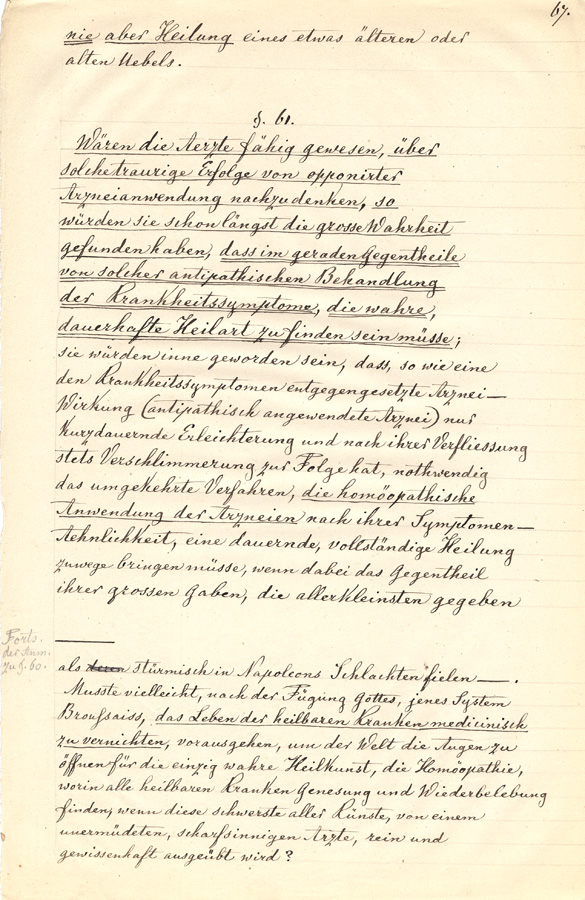 67.
nie aber Heilung eines etwas älteren oder
alten Uebels.
§. 61.
Wären die Aerzte fähig gewesen, über
solche traurige Erfolge von opponirter
Arzneianwendung nachzudenken, so
würden sie schon längst die grosse Wahrheit
gefunden haben, dass im geraden Gegentheile
von solcher antipathischen Behandlung
der Krankheitssymptome, die wahre,
dauerhafte Heilart zu finden sein müsse;
sie würden inne geworden sein, dass, so wie eine
den Krankheitssymptomen entgegengesetzte Arznei—
Wirkung (antipathisch angewendete Arznei) nur
kurzdauernde Erleichterung und nach ihrer Verfliessung
stets Verschlimmerung zur Folge hat, nothwendig
das umgekehrte Verfahren, die homöopathische
Anwendung der Arzneien nach ihrer Symptomen—
Aehnlichkeit, eine dauernde, vollständige Heilung
zuwege bringen müsse, wenn dabei das Gegentheil
ihrer grossen Gaben, die allerkleinsten gegeben
Forts.
der Anm.
zu §. 60.
als stürmisch in Napoleons Schlachten fielen —.
Musste vielleicht, nach der Fügung Gottes, jenes System
Broussaiss, das Leben der heilbaren Kranken medicinisch
zu vernichten, vorausgehen, um der Welt die Augen zu
öffnen für die einzig wahre Heilkunst, die Homöopathie,
worin alle heilbaren Kranken Genesung und Wiederbelebung
finden, wenn diese schwerste aller Künste, von einem
unermüdeten, scharfsinnigen Arzte, rein und
gewissenhaft ausgeübt wird?